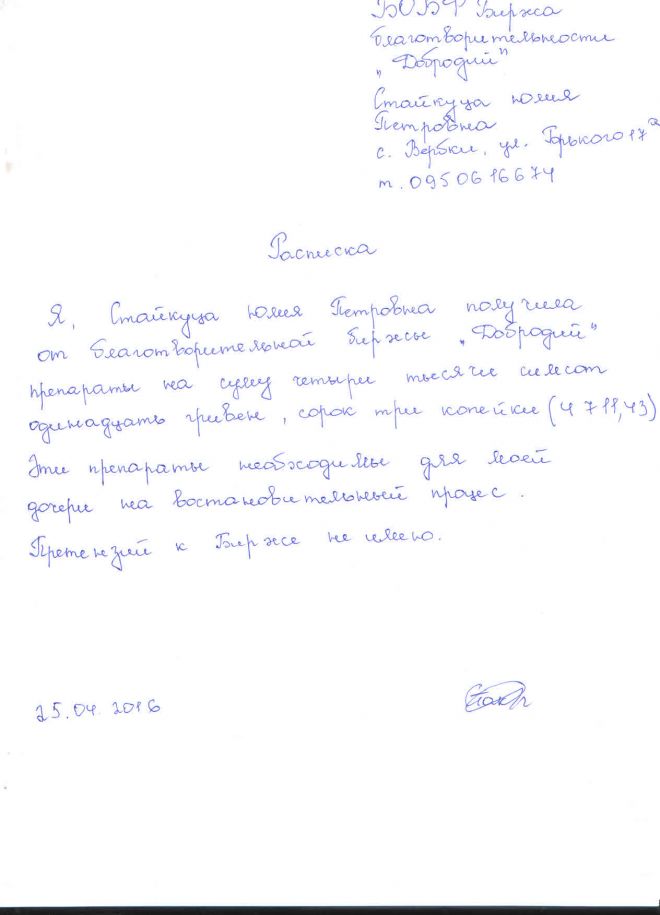 БОБФ Биржа
благотворительности
"Добродий"
Стайкуца Юлия
Петровна
с. Вербки, ул. Горького 17а
т. 0950616674
Расписка
Я, Стайкуца Юлия Петровна получила
от благотворительной биржы "Добродий"
препараты на суму четыри тысячи симсот
одинадцать гривен, сорок три копейки (4 711,43)
Эти препараты необходимы для моей
дочери на востановительный процес.
Притензий к Бирже не имею.
25.04.2016